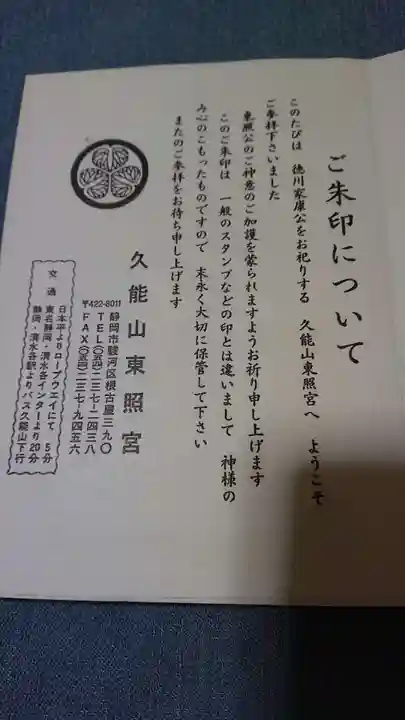 ご朱印について
このたびは 徳川家康公をお祀りする 久能山東照宮へ ようこそ
ご参拝下さいました
東照公のご神意のご加護を蒙られますようお祈り申し上げます
このご朱印は 一般のスタンプなどの印とは違いまして 神様の
み心のこもったものですので 末永く大切に保管して下さい
またのご参拝をお待ち申し上げます
久能山東照宮
〒422-8011 静岡市駿河区根古屋三九〇
TEL(〇五四)二三七-二四三八
FAX(〇五四)二三七-九四五六
交通
日本平よりロープウエイにて 5分
東名静岡・清水各インターより20分
静岡・清水各駅よりバス久能山下行